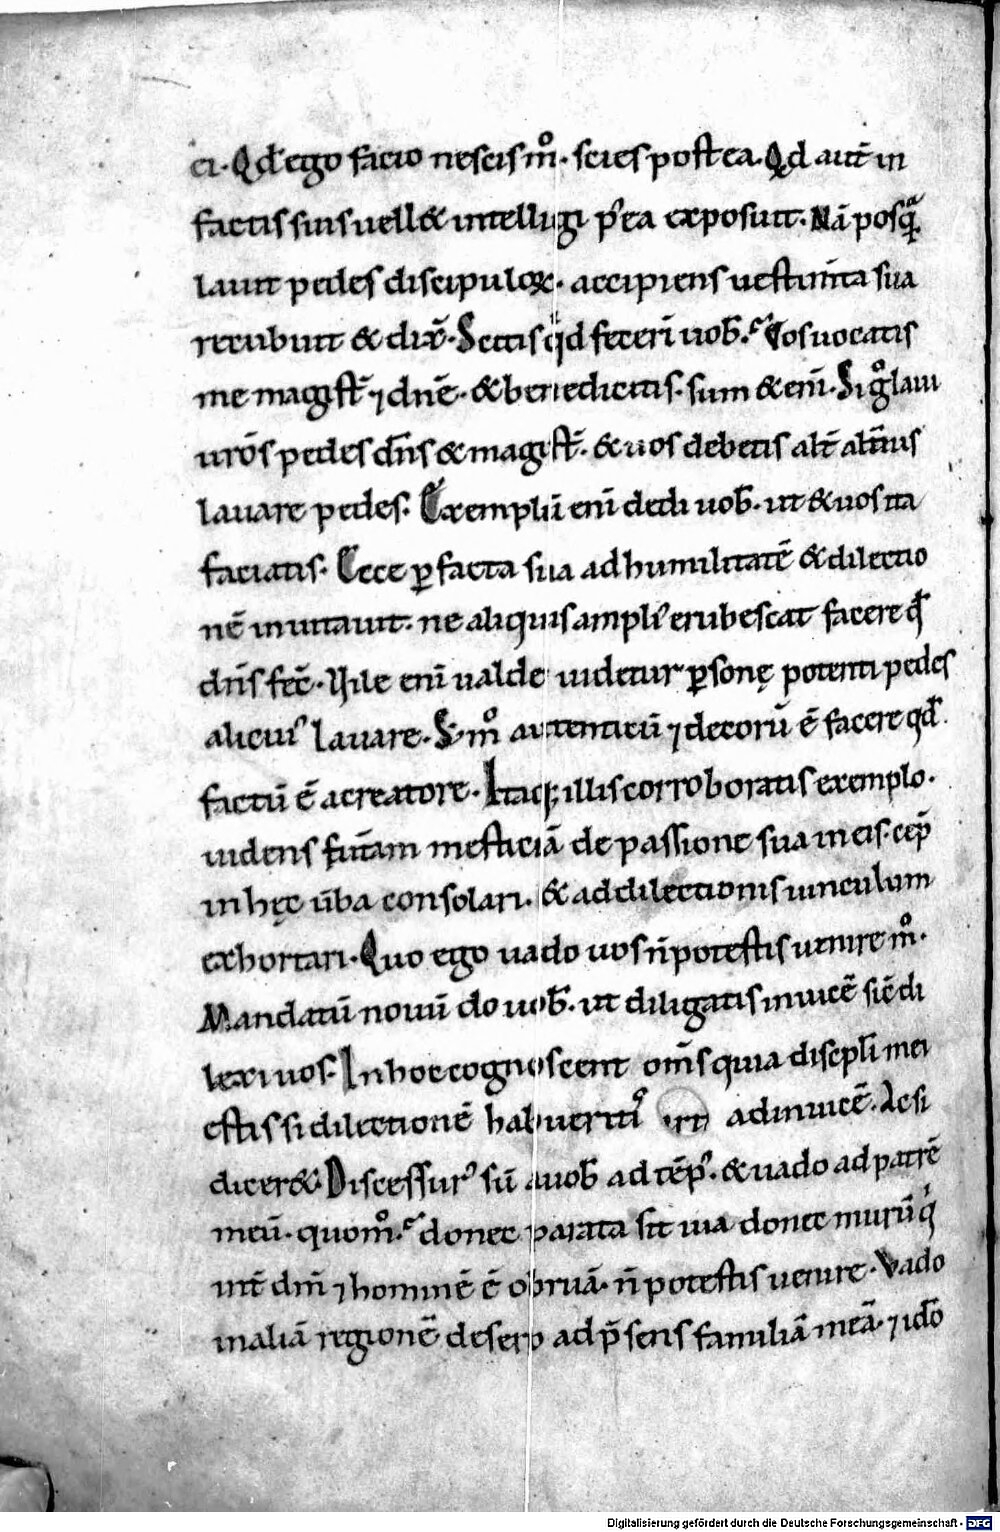 ei. Qđ ego facio nescis m̊. scies postea. Qd aut̄ in
factis suis uell& intelligi p̾ea exposuit. Nā posq̃ᵃ
lauit pedes discipuloꝝ. accipiens uestim̄ta sua
recubuit & dix̄. Scitis qͥd fecerī uob̄. Vos uocatis
me magist̄ ⁊ dn̄e. & benedicitis. sum &enī. Si g̊ laui
ur̄os pedes dn̄s & magist̄. & uos debetis alt̄ alt̄ius
lauare pedes. Exemplū enī dedi uob̄. ut & uos ita
faciatis. Ecce ꝑ facta sua ad humilitatē & dilectio
nē inuitauit. ne aliquis ampli᾽ erubescat facere qđ
dn̄s fec̄. Vile enī ualde uidetur ꝑsonę potenti pedes
alicui᾽ lauare. S; m̊ autenticū ⁊ decorū ē facere qđ
factū ē a creatore. Itaq; illis corroboratis exemplo.
uidens fut̄am mesticiā de passione sua in eis. cep̄
in hęc ūba consolari. & ad dilectionis uinculum
exhortari. Quo ego uado uos n̄ potestis uenire m̊.
Mandatū nouū do uob̄. ut diligatis inuicē sic̄ di
lexi uos. In hoc cognoscent om̄s quia discipl̄i mei
estis si dilectionē habueritis ad inuicē. Ac si
dicer&. Discessur᾽ sū a uob̄ ad tēp᾽. & uado ad patrē
meū. quom̊. donec parata sit uia donec murū qͥ
int̄ dm̄ ⁊ hominē ē obruā. n̄ potestis uenire. Vado
in aliā regionē desero ad p̄sens familiā meā. ⁊ id̄o